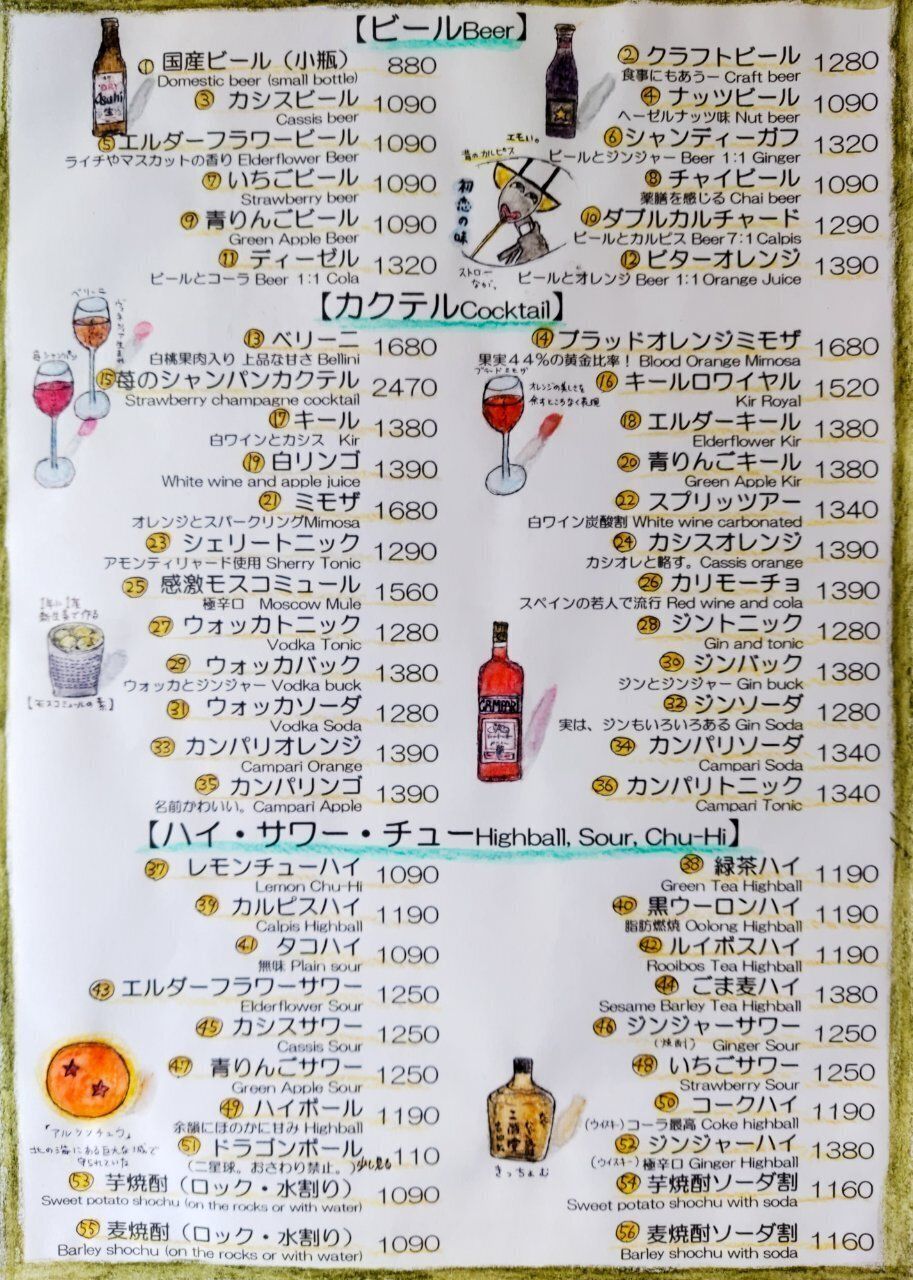 【ビールBeer】
① 国産ビール（小瓶） 880
Domestic beer (small bottle)
② クラフトビール 1280
食事にもあうー Craft beer
③ カシスビール 1090
Cassis beer
④ ナッツビール 1090
ヘーゼルナッツ味 Nut beer
⑤ エルダーフラワービール 1090
ライチやマスカットの香り Elderflower Beer
⑥ シャンディーガフ 1320
ビールとジンジャー Beer 1:1 Ginger
⑦ いちごビール 1090
Strawberry beer
⑧ チャイビール 1090
薬膳を感じる Chai beer
⑨ 青りんごビール 1090
Green Apple Beer
⑩ ダブルカルチャード 1290
ビールとカルピス Beer7:1Calpis
⑪ ディーゼル 1320
ビールとコーラ Beer 1:1 Cola
⑫ ビターオレンジ 1390
ビールとオレンジ Beer 1:1Orange Juice
Asahi
生
エモい。
昔のカルピス
初恋の味
ストロー
なが。
【カクテルCocktail】
⑬ ベリーニ 1680
白桃果肉入り 上品な甘さ Bellini
⑭ ブラッドオレンジミモザ 1680
果実４４％の黄金比率！ Blood Orange Mimosa
⑮ 苺のシャンパンカクテル 2470
Strawberry champagne cocktail
⑯ キールロワイヤル 1520
Kir Royal
⑰ キール 1380
白ワインとカシス Kir
⑱ エルダーキール 1380
Elderflower Kir
⑲ 白リンゴ 1390
White wine and apple juice
⑳ 青りんごキール 1380
Green Apple Kir
㉑ ミモザ 1680
オレンジとスパークリングMimosa
㉒ スプリッツアー 1340
白ワイン炭酸割 White wine carbonated
㉓ シェリートニック 1290
アモンティリャード使用 Sherry Tonic
㉔ カシスオレンジ 1390
カシオレと略す。Cassis orange
㉕ 感激モスコミュール 1560
極辛口 Moscow Mule
㉖ カリモーチョ 1390
スペインの若人で流行 Red wine and cola
㉗ ウォッカトニック 1280
Vodka Tonic
㉘ ジントニック 1280
Gin and tonic
㉙ ウォッカバック 1380
ウォッカとジンジャー Vodka buck
㉚ ジンバック 1380
ジンとジンジャー Gin buck
㉛ ウォッカソーダ 1280
Vodka Soda
㉜ ジンソーダ 1280
実は、ジンもいろいろある Gin Soda
㉝ カンパリオレンジ 1390
Campari Orange
㉞ カンパリソーダ 1340
Campari Soda
㉟ カンパリンゴ 1390
名前かわいい。Campari Apple
㊱ カンパリトニック 1340
Campari Tonic
ベリーニ
苺シャンパン
ブラッドミモザ
オレンジの美しさを
余すところなく表現
【モスコミュールの素】
CAMPARI
【ハイ・サワー・チューHighball, Sour, Chu-Hi】
㊲ レモンチューハイ 1090
Lemon Chu-Hi
㊳ 緑茶ハイ 1190
Green Tea Highball
㊴ カルピスハイ 1190
Calpis Highball
㊵ 黒ウーロンハイ 1190
脂肪燃焼 Oolong Highball
㊶ タコハイ 1090
無味 Plain sour
㊷ ルイボスハイ 1190
Rooibos Tea Highball
㊸ エルダーフラワーサワー 1250
Elderflower Sour
㊹ ごま麦ハイ 1380
Sesame Barley Tea Highball
㊺ カシスサワー 1250
Cassis Sour
㊻ ジンジャーサワー 1250
（焼酎） Ginger Sour
㊼ 青りんごサワー 1250
Green Apple Sour
㊽ いちごサワー 1250
Strawberry Sour
㊾ ハイボール 1190
余韻にほのかに甘み Highball
㊿ コークハイ 1190
（ウイスキー）コーラ最高 Coke highball
51 ドラゴンボール 1110
（二星球。おさわり禁止。）少し見る
52 ジンジャーハイ 1380
（ウイスキー）極辛口 Ginger Highball
53 芋焼酎（ロック・水割り） 1090
Sweet potato shochu (on the rocks or with water)
54 芋焼酎ソーダ割 1160
Sweet potato shochu with soda
55 麦焼酎（ロック・水割り） 1090
Barley shochu (on the rocks or with water)
56 麦焼酎ソーダ割 1160
Barley shochu with soda
「アルツンチュウ」
北の海にある巨大な城で
守られていた
きっちょむ